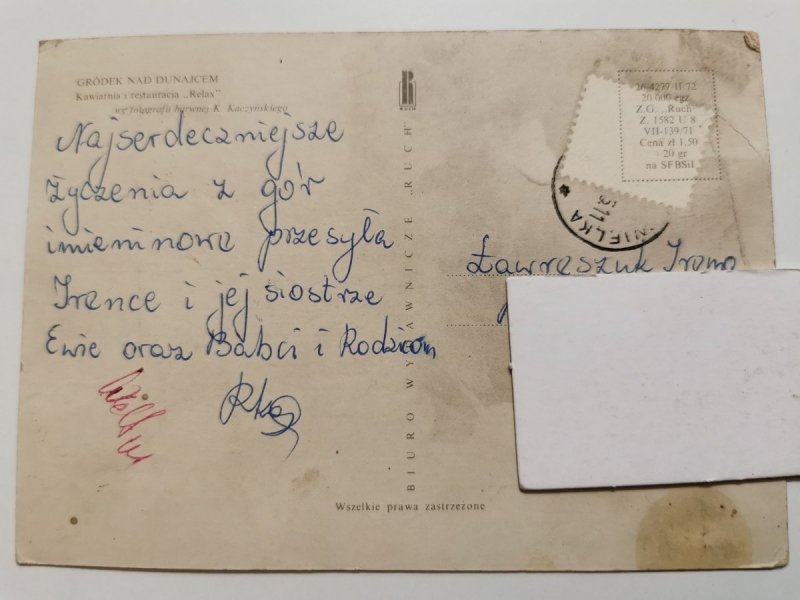 GRÓDEK NAD DUNAJCEM
Kawiarnia i restauracja „Relax"
wg fotografii barwnej K. Kaczyńskiego
Najserdeczniejsze
życzenia z gór
imieninowe przesyła
Irence i jej siostrze
Ewie oraz Babci i Rodzicom
BIURO WYDAWNICZE „RUCH"
RUCH
26-4277 II/72
20 000 egz.
Z.G. „Ruch"
Z. 1582 U 8
VII-139/71
Cena zł 1,50
+ 20 gr
na SFBSiI
WIELKA
Ławreszuk Irena
Wszelkie prawa zastrzeżone